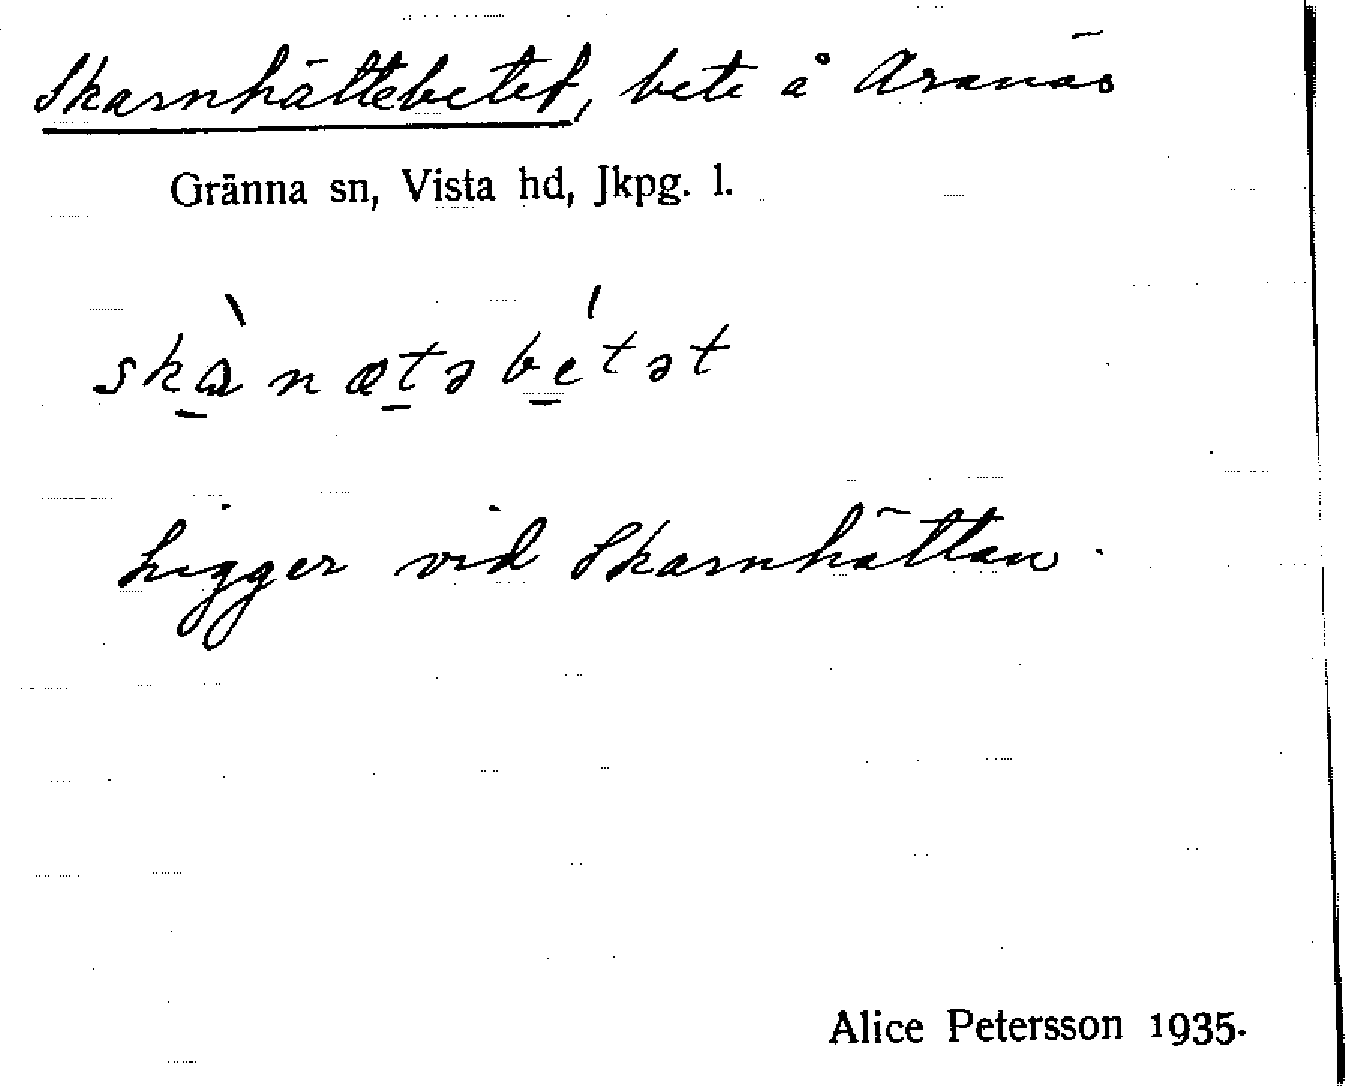 Skarnhättebetet, bete å Aranäs
Gränna sn, Vista hd, Jkpg. l.
skànætəbétət
Ligger vid Skarnhättan.
Alice Petersson 1935.